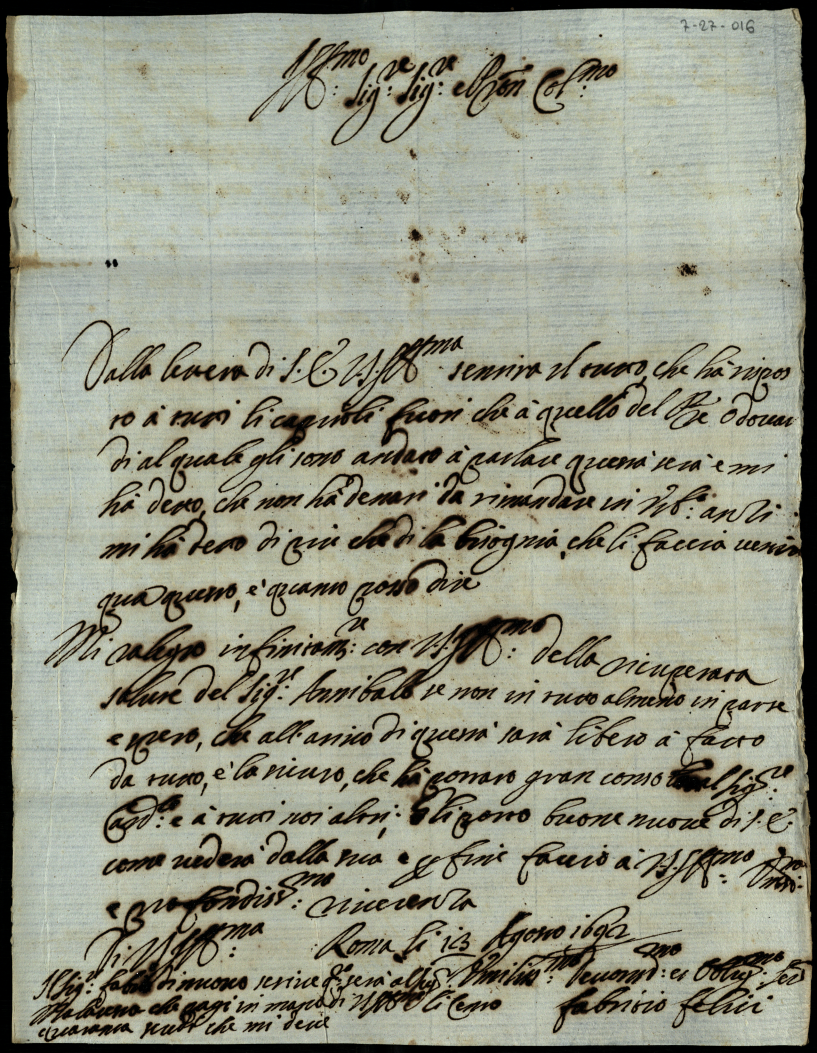 7-27-016
Ill:mo Sig:re Sig:re e Pron Col:mo
Dalla lettera di S. E. V.S. Ill:ma sentira il tutto, che hà rispos
to à tutti li capitoli fuori che à quello del Odoar
di al quale gli sono andato à parlare questa sera e mi
hà detto, che non hà denari da rimandare in anzi
mi hà detto di più che di la bisognia, che li faccia venire
qua questo, è quanto posso dire
Mi ralegro infinitam:te con V.S. Ill:mo della ricuperata
salute del Sig:re Annibale se non in tutto almeno in parte
e spero, che all'arrivo di questa sarà libero à fatto
da tutto, e l'assicuro, che hà portato gran conso al Sig:re
Card:le e à tutti noi altri; e li porto buone nuove di S. E.
come vederà dalla sua e per fine faccio à V.S. Ill:mo
e profondiss:mo riverenza
Di V.S. Ill:ma Roma li 23 Agosto 1692
Il Sig:r di nuovo scrive q:ta sera al Sig:r Devotiss:mo et Obblig:mo Ser:
che paghi in mano di V.S. Ill:mo li cento Fabritio Felici
quaranta scudi che mi deve